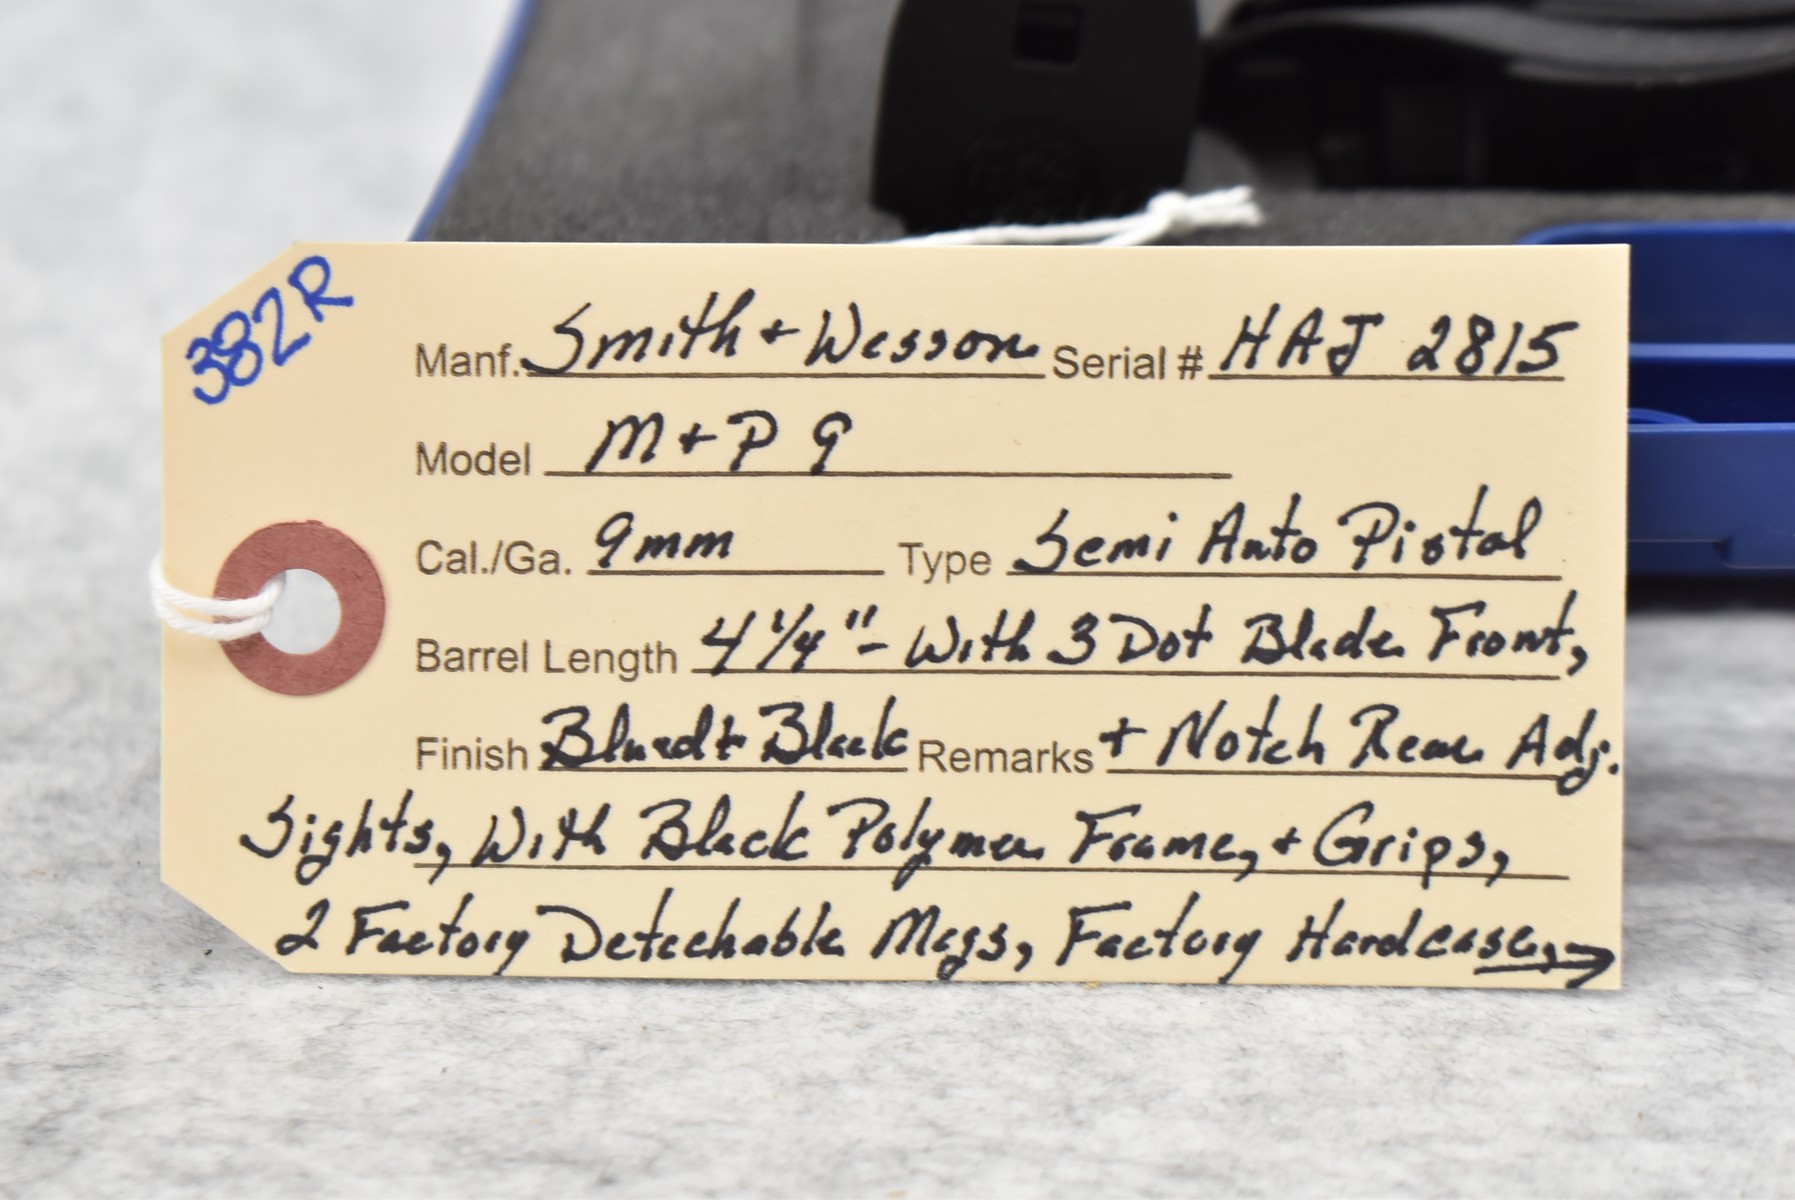 382R
Manf. Smith + Wesson Serial # HAJ 2815
Model M+P 9
Cal./Ga. 9mm Type Semi Auto Pistol
Barrel Length 4 1/4" - With 3 Dot Blade Front,
Finish Blued + Black Remarks + Notch Rear Adj.
Sights, With Black Polymer Frame, + Grips,
2 Factory Detachable Mags, Factory Hardcase, →